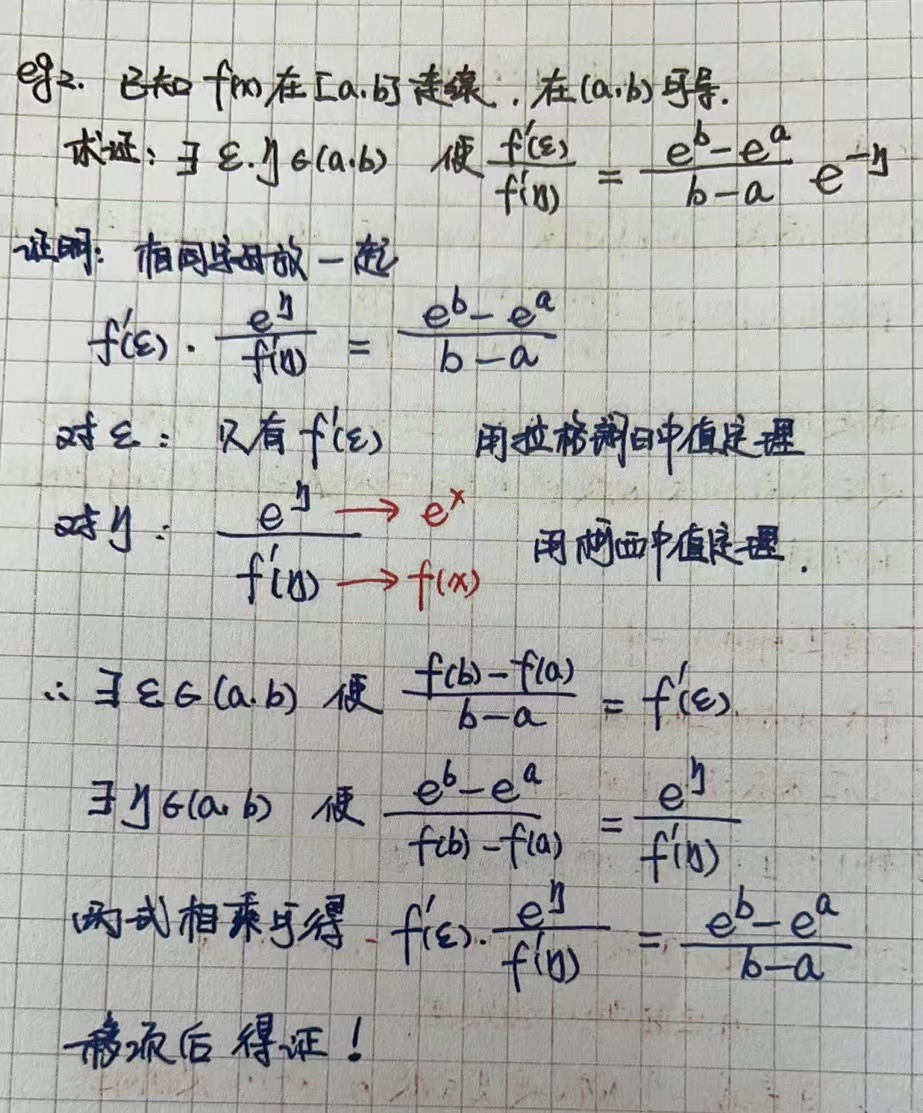 eg2. 已知 f(x) 在 [a.b] 连续 , 在 (a.b) 可导.
求证: ∃ ε.η∈(a.b) 使 f'(ε)/f'(η) = (e^b-e^a)/(b-a) e^{-η}
证明: 相同字母放一起
f'(ε) · e^η/f'(η) = (e^b-e^a)/(b-a)
对 ε : 只有 f'(ε) 用拉格朗日中值定理
对 η : e^η/f'(η) → e^x → f(x) 用柯西中值定理.
∴ ∃ ε∈(a.b) 使 (f(b)-f(a))/(b-a) = f'(ε)
∃ η∈(a.b) 使 (e^b-e^a)/(f(b)-f(a)) = e^η/f'(η)
两式相乘可得 f'(ε)·e^η/f'(η) = (e^b-e^a)/(b-a)
移项后得证!